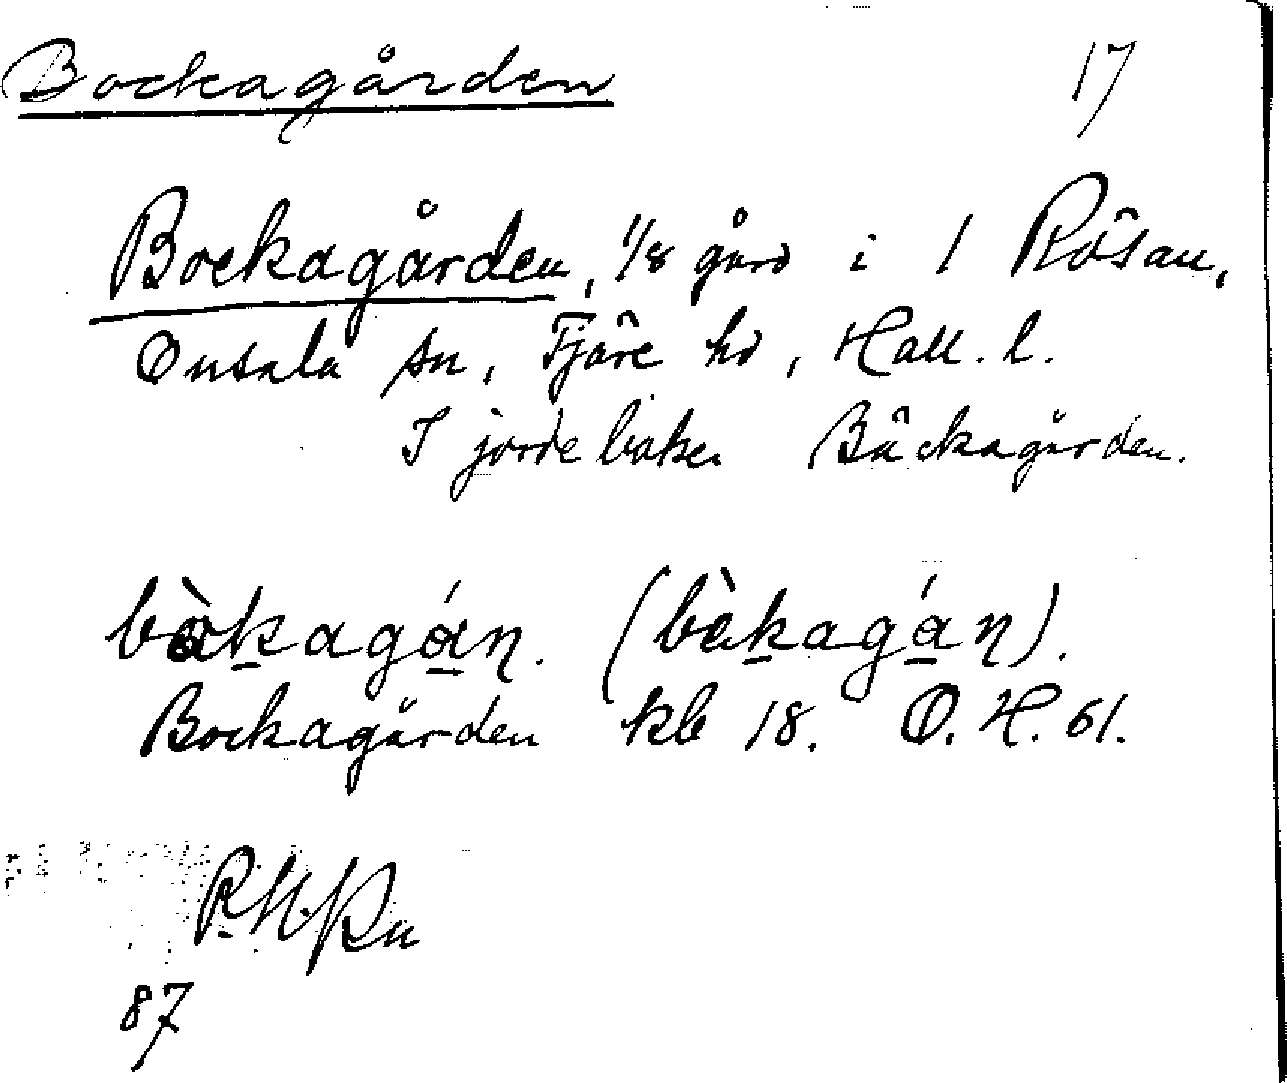 Bockagården 17
Bockagården, 1/8 gård i 1 Rösan,
Onsala sn, Fjäre hd, Hall. l.
I jordeboken Bäckagården.
bàkagán. (bàkagán).
Bockagården kb 18. O. H. 61.
87